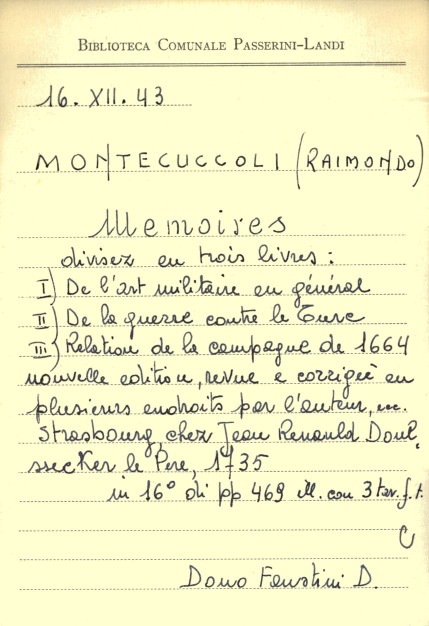 BIBLIOTECA COMUNALE PASSERINI-LANDI
16. XII. 43
MONTECUCCOLI (RAIMONDO)
Memoires
divisez en trois livres:
I) De l'art militaire en général
II) De la guerre contre le Turc
III) Relation de la campagne de 1664
nouvelle edition, revue e corrigée en
plusieurs endroits par l'auteur, ecc.
Strasbourg, chez Jean Renauld Doul,
ssecker le Pere, 1735
in 16° di pp 469 ill. con 3 tav. f. t.
C
Dono Faustini D.